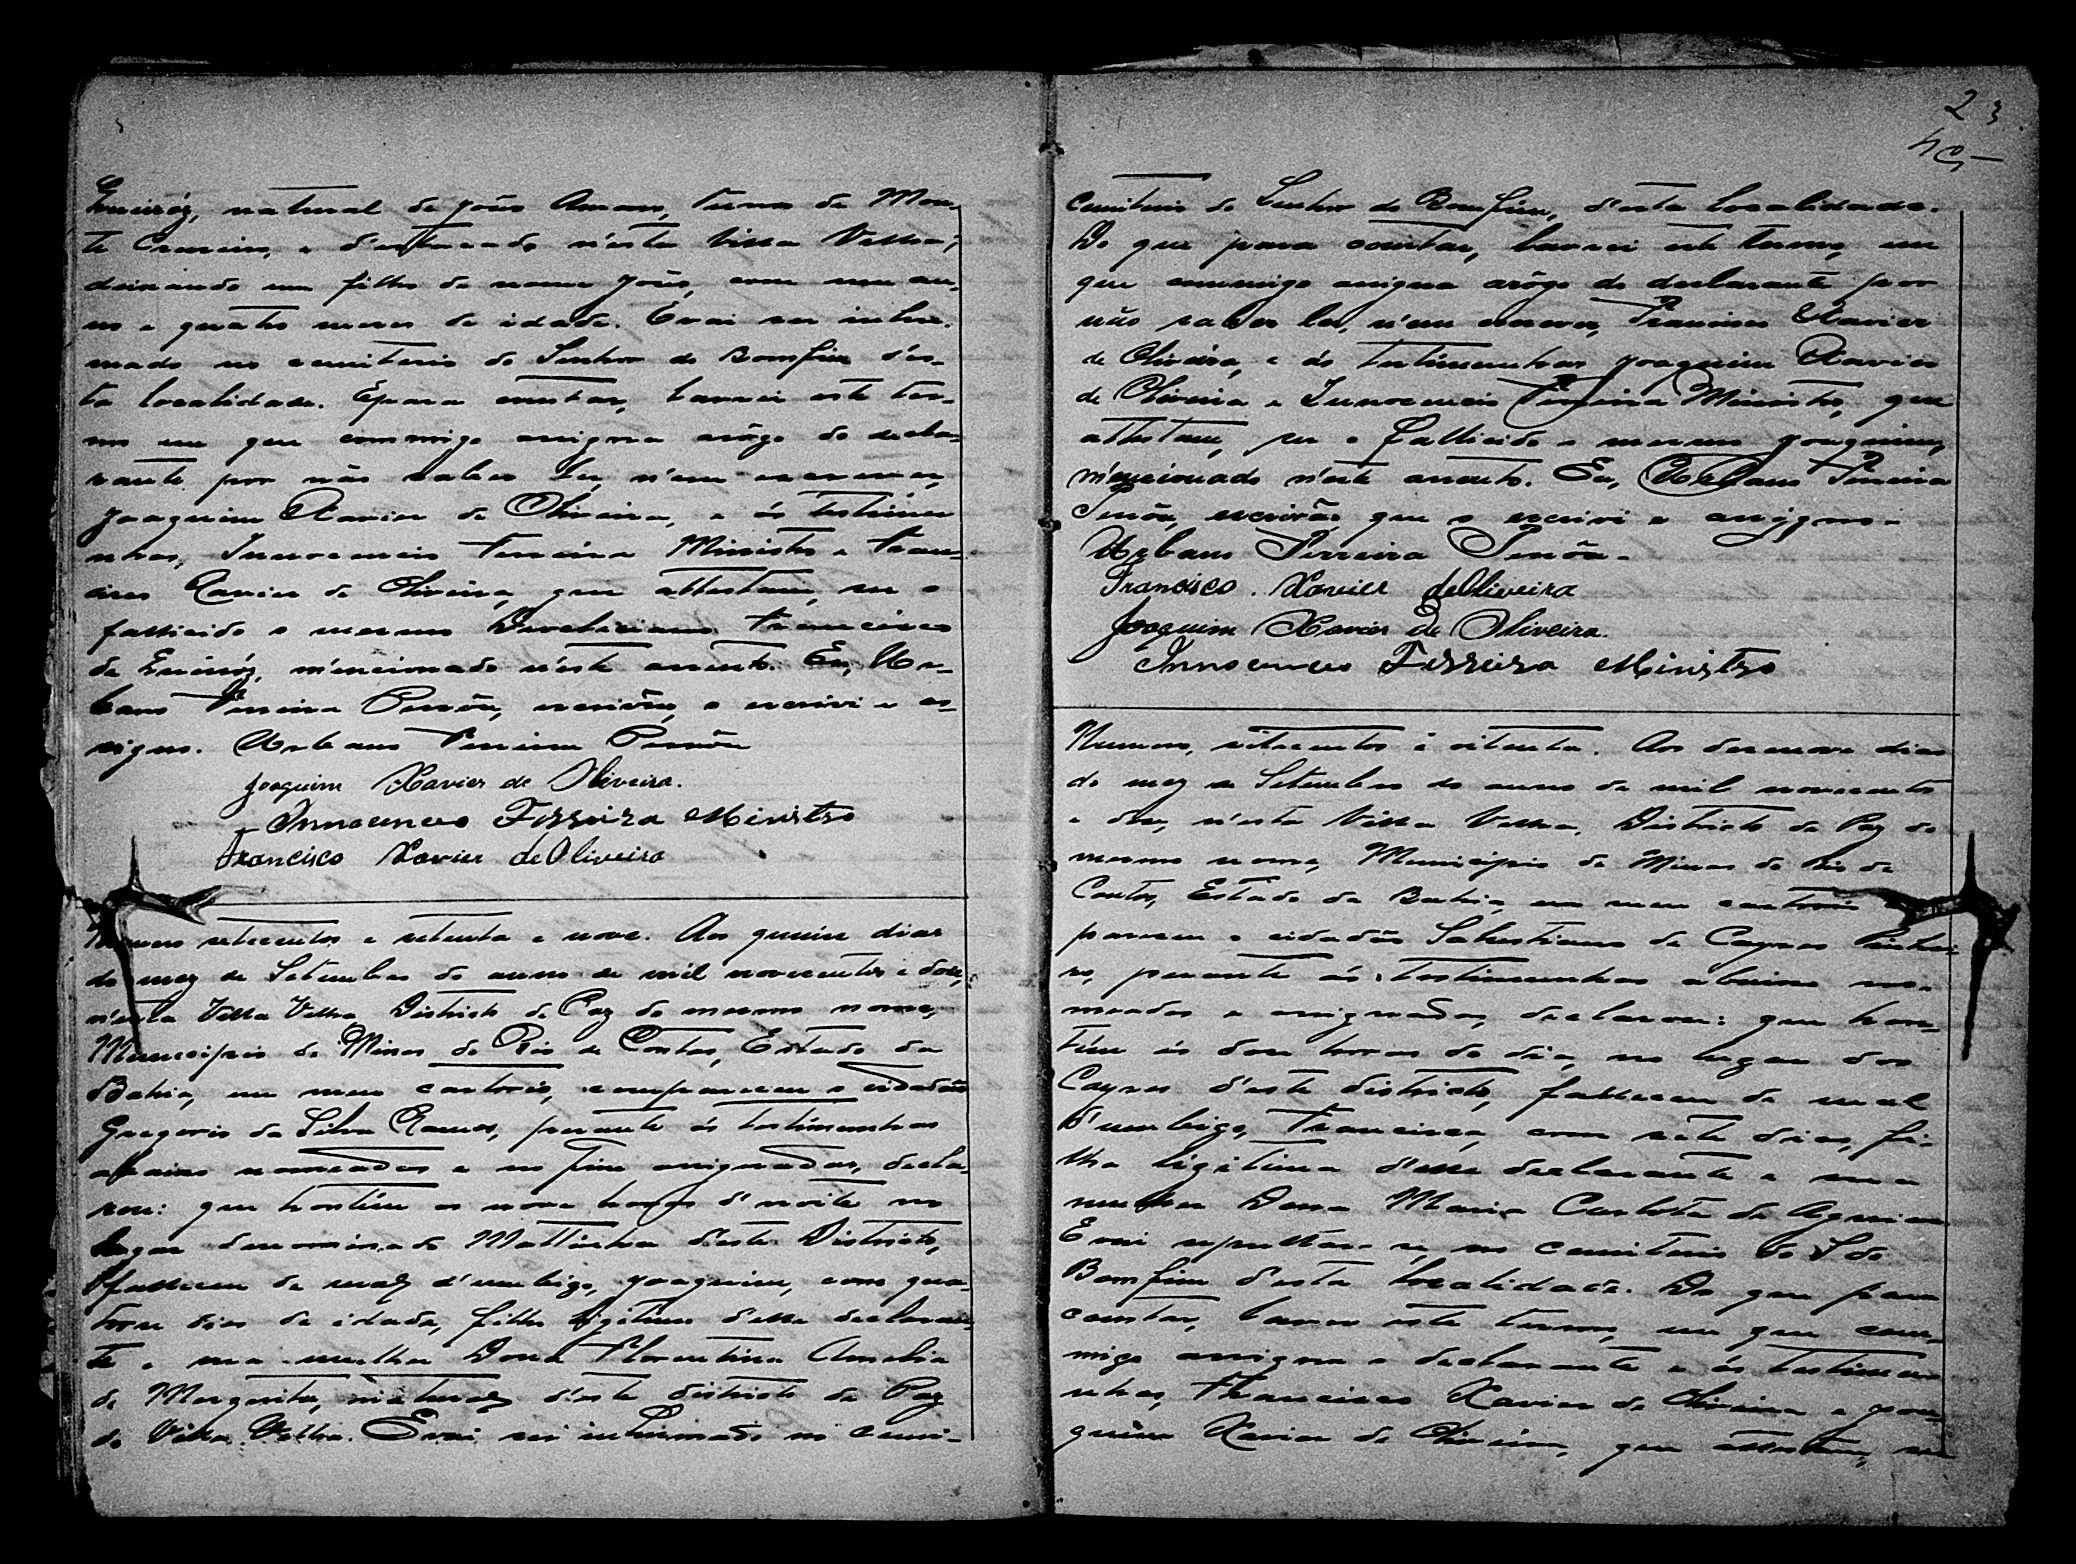 Queiróz, natural de João Amaro, turma de Mon-
te Cruzeiro, e d'estacado n'esta Villa Velha;
deixando um filho de nome João, com um an-
no e quatro mezes de idade. E vai ser inhu-
mado no cemiterio do Senhor do Bomfim d'es-
ta localidade. E para constar, lavrei este ter-
mo em que commigo assigna arôgo do decla-
rante por não saber ler, n'em escrever,
Joaquim Xavier de Oliveira, e ás testimu-
nhas, Innocencio Ferreira Ministro e Fran-
cisco Xavier de Oliveira, que attestam, ser o
fallicido o mesmo Francisco
de Queiróz, m'encionado n'este assento. Eu, Ur-
bano Ferreira Penôa, escrivão, o escrivi e as-
signo. Urbano Ferreira Penôa
Joaquim Xavier de Oliveira.
Innocencio Ferreira Ministro
Francisco Xavier de Oliveira
Numero setecentos e setenta e nove. Aos quinze dias
do mez de Setembro do anno de mil novecentos e doze,
n'esta Villa Velha Districto de Paz do mesmo nome,
Municipio de Minas do Rio de Contas, Estado da
Bahia, em meu cartorio, compareceu o cidadão
Gregorio da Silva Ramos, perante ás testimunhas
abaixo nomeadas e no fim assignadas, decla-
rou: que hontem as nove horas d'noite no
lugar denominado Mattinha d'este Districto,
falleceu de mal d'umbigo, Joaquim, com qua-
torze dias de idade, filho ligitimo d'esse declaran-
te e sua mulher Dona Florentina Amelia
de Mesquita, naturaes d'este districto de Paz
de Villa Velha. E vai ser inhumado no cemi-
23
cemiterio do Senhor do Bomfim, d'esta localidade.
Do que para constar, lavrei este termo, em
que commigo assigna arôgo do declarante por
não saber ler, n'em escrever, Francisco Xavier
de Oliveira, e ás testimunhas Joaquim Xavier
de Oliveira e Innocencio Ferreira Ministro, que
attestam, ser o fallicido o mesmo Joaquim,
m'encionado n'este assento. Eu, Urbano Ferreira
Penôa, escrivão que o escrivi e assigno.
Urbano Ferreira Penôa.
Francisco. Xavier de Oliveira
Joaquim Xavier de Oliveira.
Innocencio Ferreira Ministro
Numero, setecentos e oitenta. Aos desenove dias
do mez de Setembro do anno de mil novecentos
e doze, n'esta Villa Velha, Districto de Paz do
mesmo nome, Municipio de Minas do Rio de
Contas, Estado da Bahia, em meu cartorio
pareceu o cidadão Salustiano de Cayres Pinhei-
ro, perante ás testimunhas abaixo no-
meadas e assignadas, declarou: que hon-
tem ás doze horas do dia, no lugar dos
Cayres d'este districto, falleceu de mal
d'umbigo, Francisca, com sete dias, fi-
lha ligitima d'esse declarante e sua
mulher Dona Maria Carlota de Aguiar
E vai sepultar-se, no cemiterio do S. do
Bomfim d'esta localidade. Do que para
constar, lavrei este termo, em que com-
migo assigna o declarante e ás testimu-
nhas, Francisco Xavier de Oliveira e Joa-
quim Xavier de Oliveira, que attestam, ser